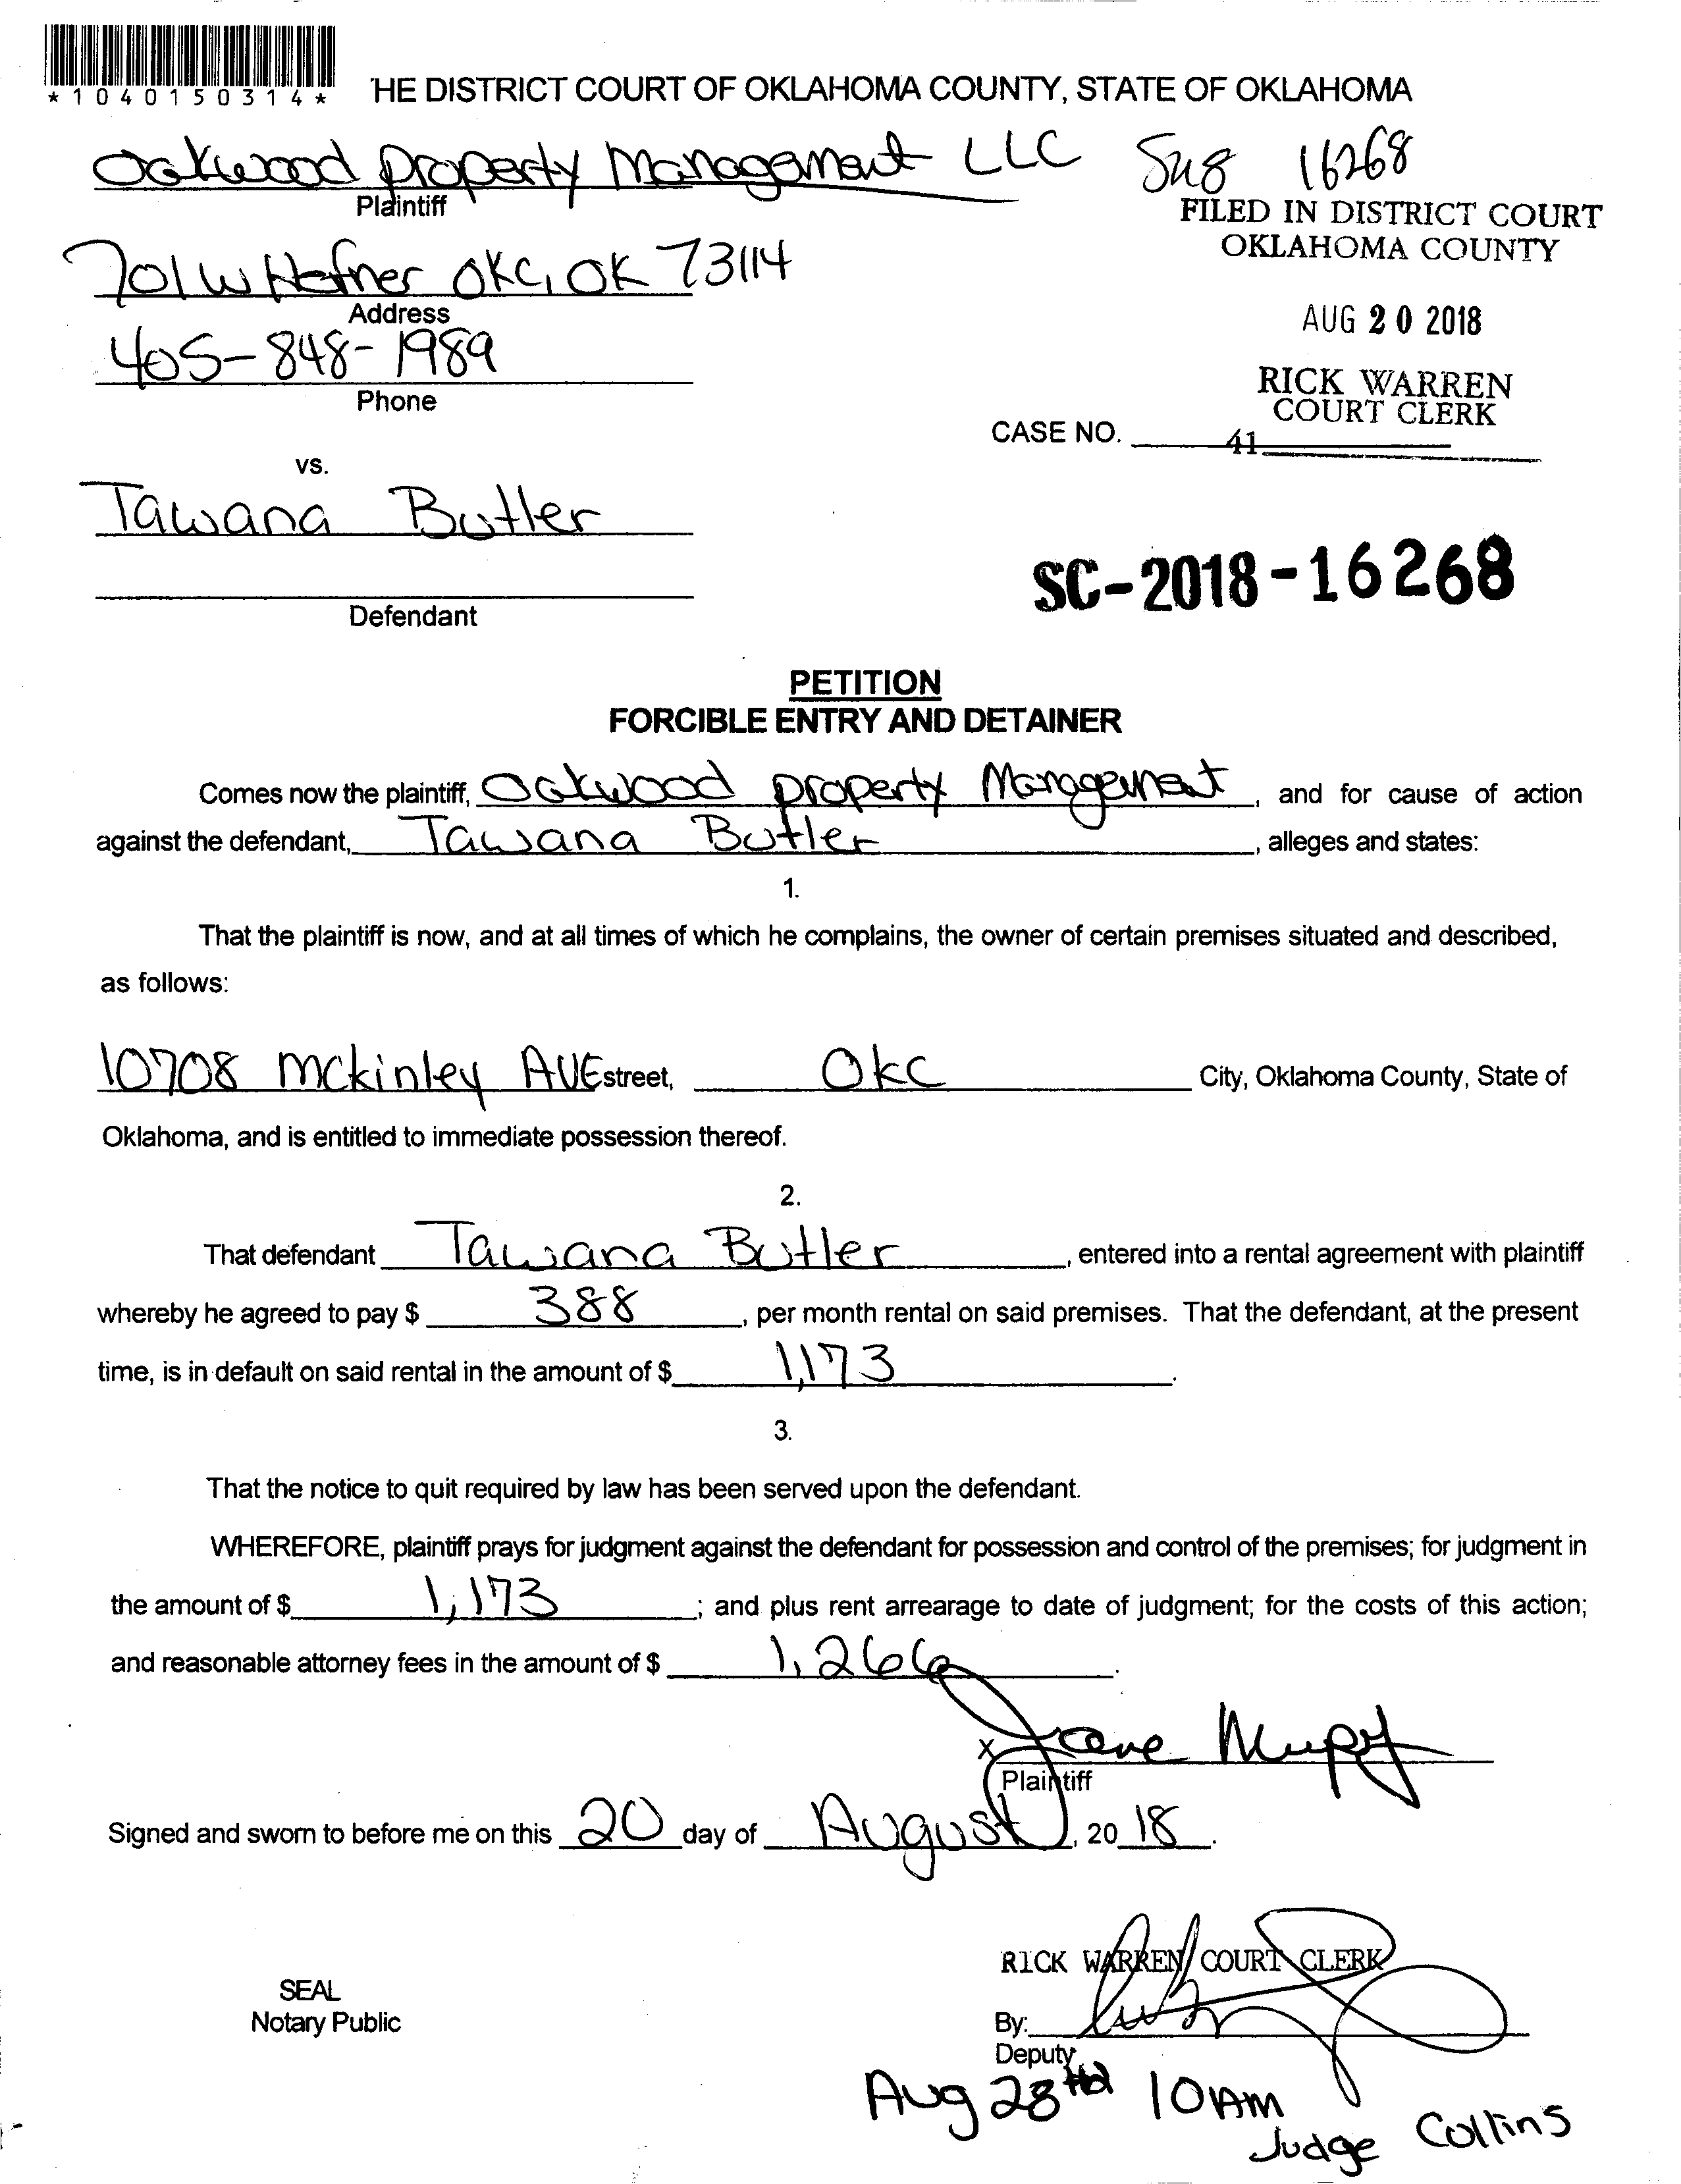 *1040150314*
HE DISTRICT COURT OF OKLAHOMA COUNTY, STATE OF OKLAHOMA
Oakwood Property Management LLC
16268
Plaintiff
FILED IN DISTRICT COURT
OKLAHOMA COUNTY
701 W Hefner OKC, OK 73114
Address
AUG 20 2018
405-848-1989
Phone
RICK WARREN
COURT CLERK
CASE NO.
41
vs.
Tawana Butler
Defendant
SC-2018-16268
PETITION
FORCIBLE ENTRY AND DETAINER
Comes now the plaintiff, Oakwood property Management, and for cause of action
against the defendant, Tawana Butler, alleges and states:
1.
That the plaintiff is now, and at all times of which he complains, the owner of certain premises situated and described,
as follows:
10708 Mckinley AVE street, OKC City, Oklahoma County, State of
Oklahoma, and is entitled to immediate possession thereof.
2.
That defendant Tawana Butler, entered into a rental agreement with plaintiff
whereby he agreed to pay $ 388, per month rental on said premises. That the defendant, at the present
time, is in default on said rental in the amount of $ 1,173.
3.
That the notice to quit required by law has been served upon the defendant.
WHEREFORE, plaintiff prays for judgment against the defendant for possession and control of the premises; for judgment in
the amount of $ 1,173; and plus rent arrearage to date of judgment; for the costs of this action;
and reasonable attorney fees in the amount of $ 1,266.
X
Plaintiff
Signed and sworn to before me on this 20 day of August, 20 18.
RICK WARREN COURT CLERK
SEAL
Notary Public
By:
Deputy
Aug 28th 10AM
Judge Collins